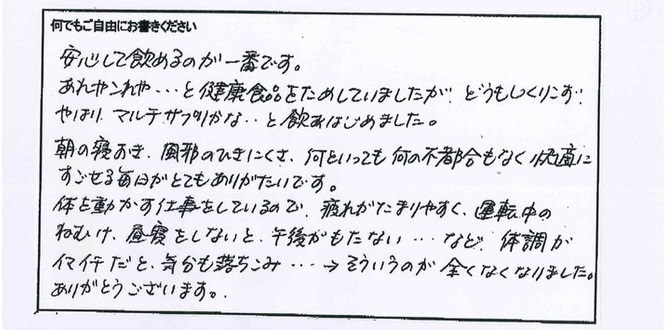 何でもご自由にお書きください
安心して飲めるのが一番です。
あれやこれや・・・と健康食品をためしていましたが、どうもしっくりこず、
やはり、マルチサプリかな・・と飲みはじめました。
朝の寝おき、風邪のひきにくさ、何といっても何の不都合もなく快適に
すごせる毎日がとてもありがたいです。
体を動かす仕事をしているので、疲れがたまりやすく、運転中の
ねむけ、昼寝をしないと、午後がもたない・・・など、体調が
イマイチだと、気分も落ちこみ・・・→そういうのが全くなくなりました。
ありがとうございます。